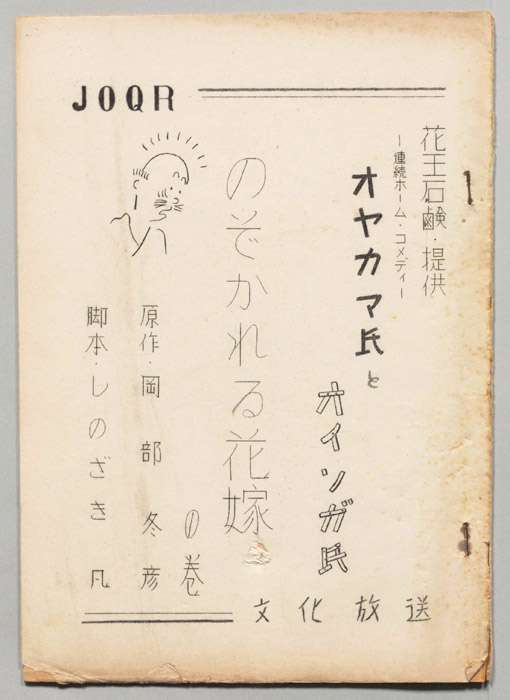 JOQR
花王石鹸・提供
―連続ホーム・コメディ―
オヤカマ氏と
オイソガ氏
のぞかれる花嫁
の巻
原作・岡部冬彦
脚本・しのざき凡
文化放送